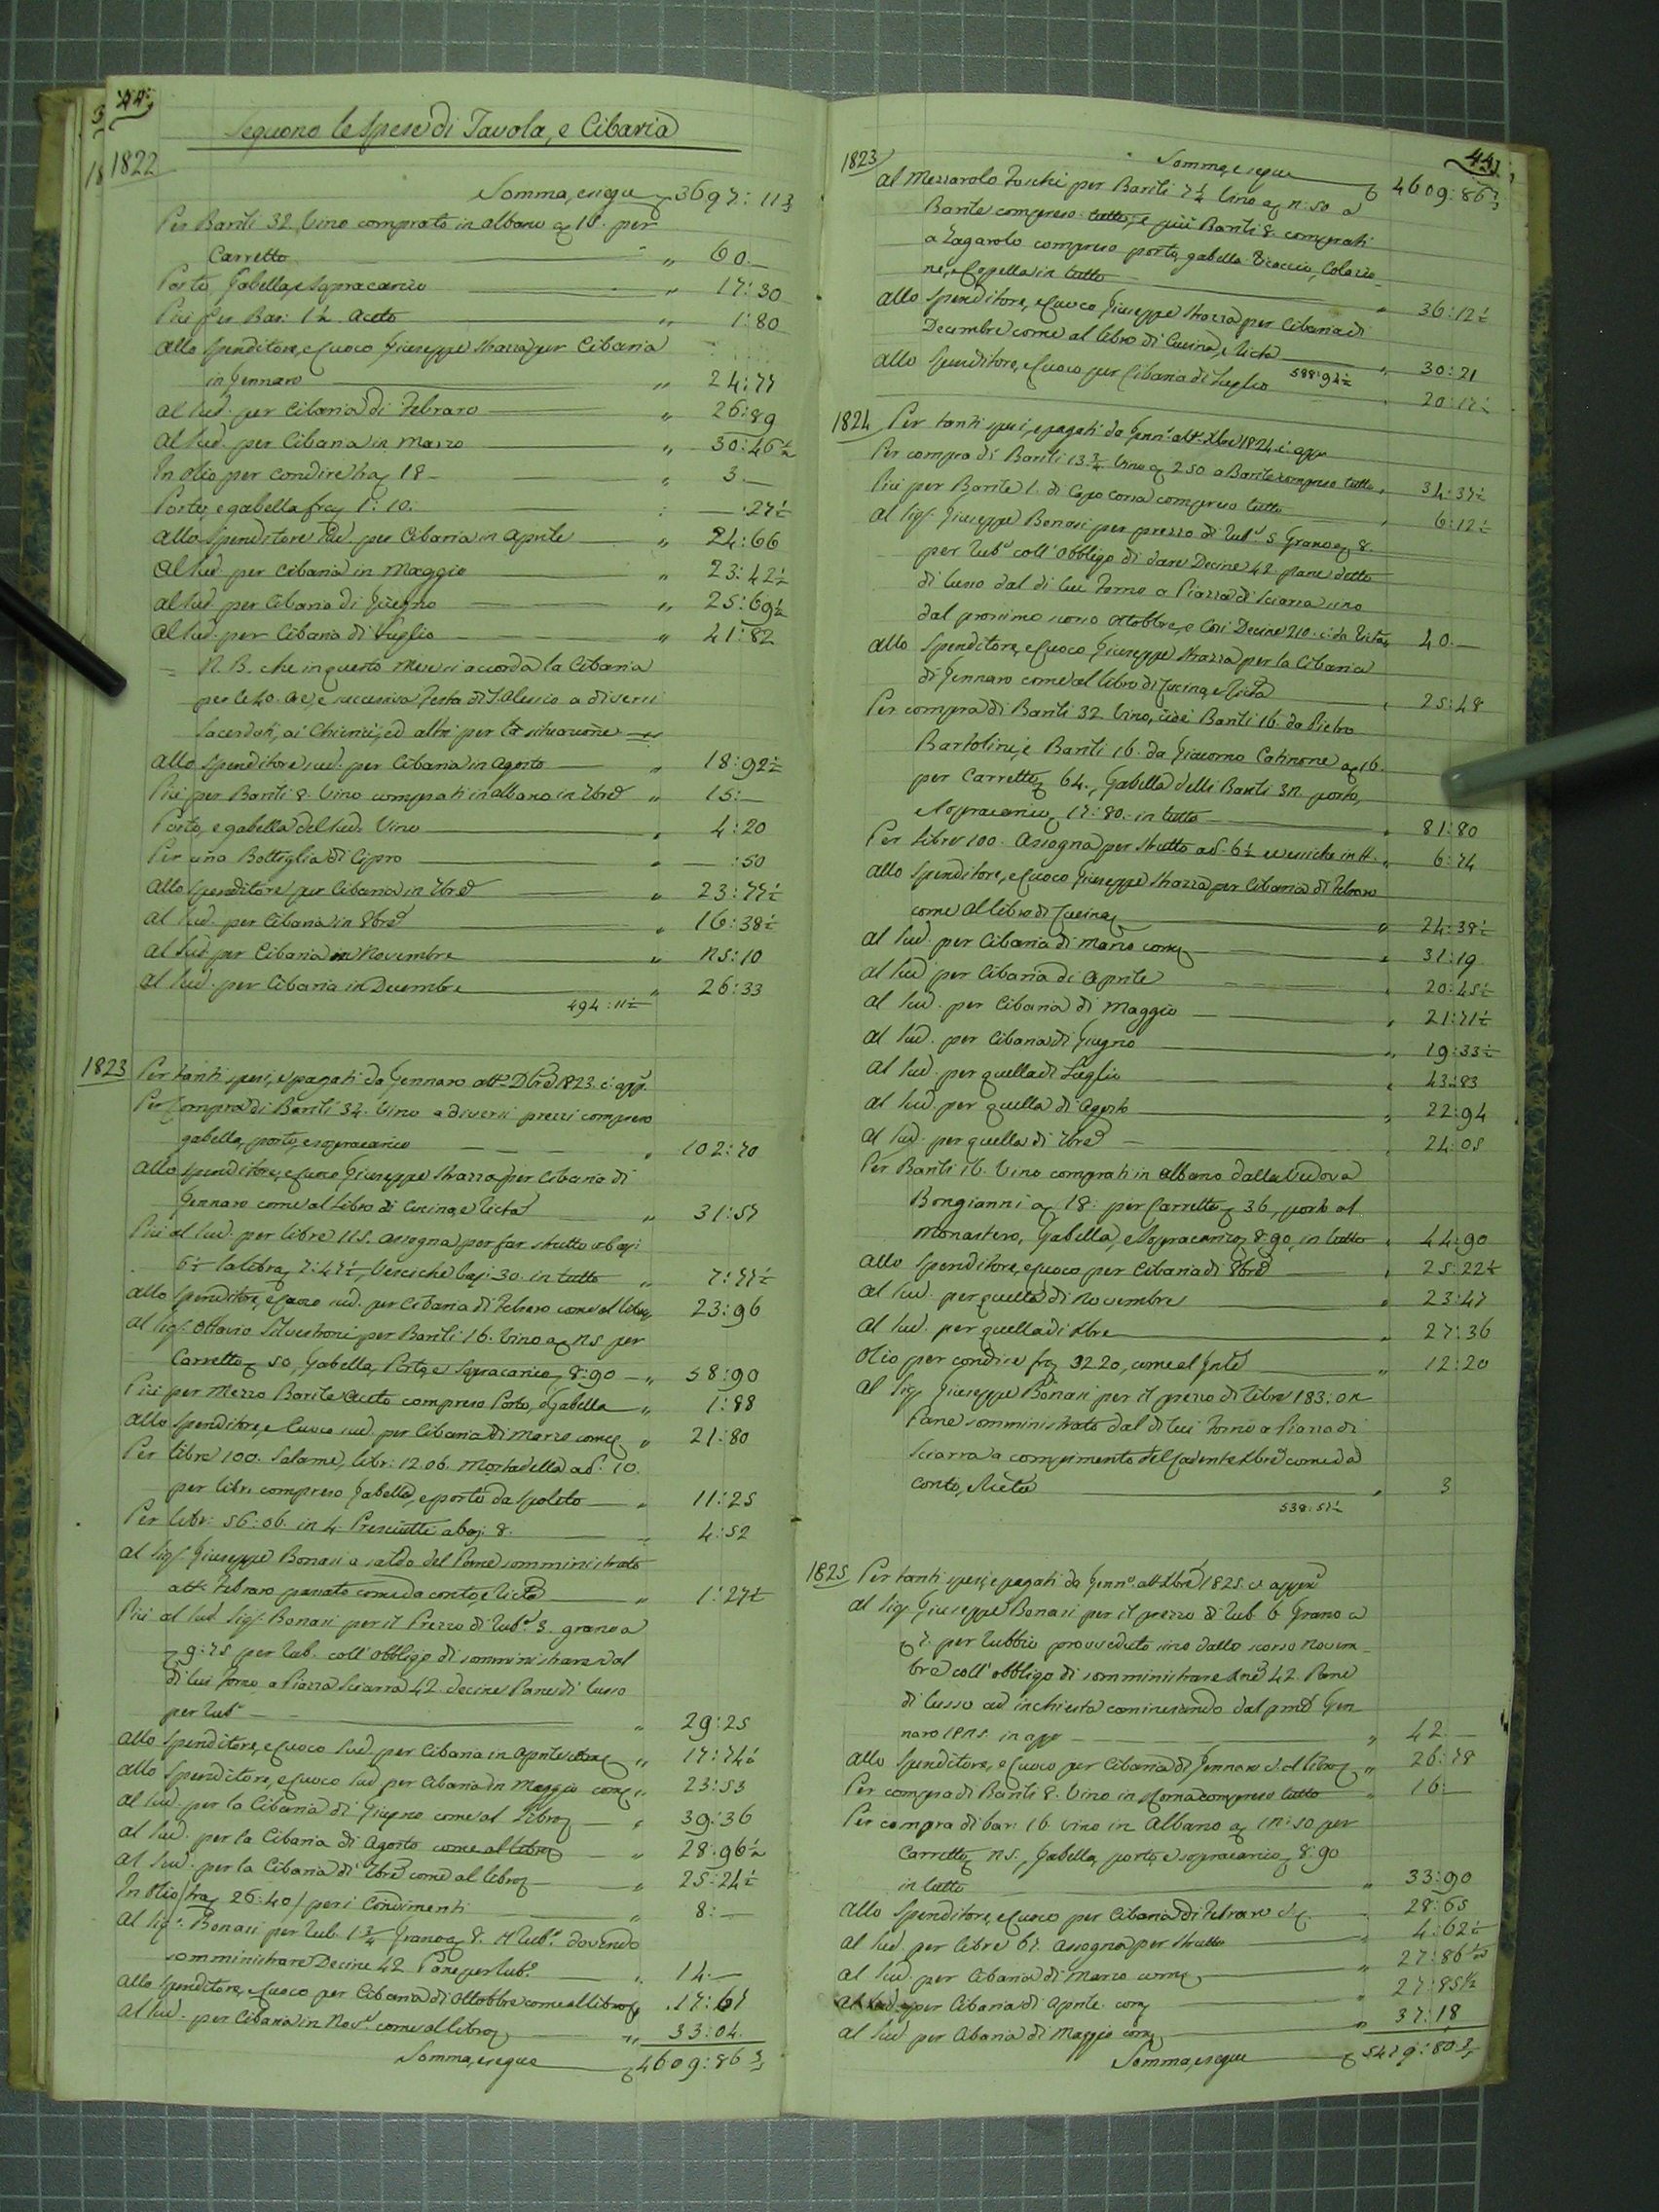 44
Seguono le Spese di Tavola, e Cibaria
1822
Somma, e segue 3697: 11
Per Barili 32. Vino comprato in Albano a 10. per
Carretto " 60.—
Porto, Gabella, e Sopracarico " 17:30
Più per Bar: 1½ Aceto " 1:80
Allo Spenditore, e Cuoco Giuseppe Strazza per Cibaria
in Gennaro " 24:77
Al Sud. per Cibaria di Febraro " 26:89
Al Sud. per Cibaria in Marzo " 30:46½
In Olio per condire 18 " 3.—
Porto, e gabella 1:10. — :27½
Allo Spenditore Sud. per Cibaria in Aprile " 24:66
Al Sud. per Cibaria in Maggio " 23:42½
Al Sud. per Cibaria di Giugno " 25:69½
Al Sud. per Cibaria di Luglio " 41:82
N.B. che in questo Mese si accorda la Cibaria
per le 40. Ore, e successiva Festa di S. Alessio a diversi
Sacerdoti, ai Chierici, ed altri per la situazione
Allo Spenditore sud. per Cibaria in Agosto " 18:92½
Più per Barili 8. Vino comprati in Albano in 7bre " 15:—
Porto, e gabella del Sud. Vino " 4:20
Per una Bottiglia di Cipro " — :50
Allo Spenditore per Cibaria in 7bre " 23:77½
Al Sud. per Cibaria in 8bre " 16:38½
Al Sud. per Cibaria in Novembre " 25:10
Al Sud. per Cibaria in Decembre " 26:33
494:11½
1823 Per tanti spesi, e pagati da Gennaro att° Xbre 1823. c: app.
Per Compra di Barili 34. Vino a diversi prezzi compreso
gabella, porto, e sopracarico " 102:70
Allo Spenditore, e Cuoco Giuseppe Strazza per Cibaria di
Gennaro come al Libro di Cucina, e Ricta " 31:57
Più al Sud. per libre 115. Assogna per far strutto a baj:
6½ la libra 7:47½, Vesciche baj: 30. in tutto " 7:77½
Allo Spenditore, e Cuoco sud. per Cibaria di Febraro come al libro 23:96
Al Sig. Ottavio Silvestroni per Barili 16. Vino a 25 per
Carretto 50, Gabella, Porto, e Sopracarico 8:90 — " 58:90
Più per Mezzo Barile Aceto compreso Porto, e Gabella " 1:88
Allo Spenditore, e Cuoco sud. per Cibaria di Marzo come " 21:80
Per libre 100. Salame, libr: 12.06. Mortadella a 10.
per libr. compreso Gabella, e porto da Spoleto " 11:25
Per libr: 56:06. in 4. Presciutti a baj: 8. " 4:52
Al Sig. Giuseppe Bonasi a saldo del Pane somministrato
att° Febraro passato come da conto, e Ricta " 1:27½
Più al Sud. Sig. Bonasi per il Prezzo di Rub. 3. grano a
9:75 per Rub. coll'obbligo di somministrare dal
di lui Forno a Piazza Sciarra 42. decine Pane di lusso
per Rub. " 29:25
Allo Spenditore, e Cuoco Sud. per Cibaria in Aprile come " 17:74½
Allo Spenditore, e Cuoco Sud per Cibaria in Maggio come " 23:53
Al Sud. per la Cibaria di Giugno come al Libro " 39:36
Al Sud. per la Cibaria di Agosto come al libro " 28:96½
Al Sud. per la Cibaria di 7bre come al libro " 25:24½
In Olio 26:40 per i Condimenti " 8:—
Al Sig. Bonasi per Rub. 1¾ Grano a 8. il Rub. dovendo
somministrare Decine 42 Pane per Rub. " 14.—
Allo Spenditore, e Cuoco per Cibaria di Ottobbre come al libro 17:61
Al Sud. per Cibaria in Nov. come al libro " 33:04.
Somma, e segue 4609:86
1823 Somma, e segue 4609:86
Al Mezzarolo Foschi per Barili 7½ Vino a 2:50 a
Barile compreso tutto, e più Barili 8. comprati
a Zagarolo compreso porto, gabella Vicaccio, Colazio-
ne, e Copella in tutto " 36:12½
Allo Spenditore, e Cuoco Giuseppe Strazza per Cibaria di
Decembre come al libro di Cucina, e Ricta " 30:21
Allo Spenditore, e Cuoco per Cibaria di Luglio 588:92½ 20:17½
1824 Per tanti spesi, e pagati da Genn° att° Xbre 1824. c: app.
Per compra di Barili 13¾ Vino a 2 50 a Barile compreso tutto " 34:37½
Più per Barile 1. di Capo Corsa compreso tutto " 6:12½
Al Sig. Giuseppe Bonasi per prezzo di Rub. 5 Grano a 8.
per Rub. coll'obbligo di dare Decine 42. Pane detto
di lusso dal di lui Forno a Piazza di Sciarra sino
dal prossimo scorso Ottobbre, e così Decine 210. c: da Ricta 40.—
Allo Spenditore, e Cuoco Giuseppe Strazza per la Cibaria
di Gennaro come al libro di Cucina, e Ricta " 25:48
Per compra di Barili 32 Vino, cioè Barili 16. da Pietro
Bartolini, e Barili 16. da Giacomo Catinone a 16.
per Carretto 64., Gabella delli Barili 32. porto,
e Sopracarico 17:80. in tutto " 81:80
Per libre 100. Assogna per strutto a b. 6½ e vesciche in tt. " 6:74
Allo Spenditore, e Cuoco Giuseppe Strazza per Cibaria di Febraro
come al libro di Cucina " 24:38½
Al Sud. per Cibaria di Marzo come " 31:19
Al Sud per Cibaria di Aprile " 20:45½
Al Sud. per Cibaria di Maggio " 21:71½
Al Sud. per Cibaria di Giugno " 19:33½
Al Sud. per quella di Luglio " 43:83
Al Sud. per quella di Agosto " 22:94
Al Sud. per quella di 7bre " 24:05
Per Barili 16. Vino comprati in Albano dalla Vedova
Bongianni a 18: per Carretto 36, porto al
Monastero, Gabella, e Sopracarico 8:90, in tutto 44:90
Allo Spenditore, e Cuoco per Cibaria di 8bre " 25:22½
Al Sud. per quella di Novembre " 23:47
Al Sud. per quella di Xbre " 27:36
Olio per condire 32 20, come al " 12:20
Al Sig. Giuseppe Bonasi per il prezzo di libre 183:
Pane somministrato dal di lui Forno a Piazza di
Sciarra a compimento del cadente Xbre come da
conto, e Ricta " 3
538:57½
1825 Per tanti spesi, e pagati da Genn° att° Xbre 1825. c: app.
Al Sig. Giuseppe Bonasi per il prezzo di Rub. 6 Grano a
7. per Rubbio provveduto sino dallo scorso Novem-
bre coll'obbligo di somministrare 42. Pane
di lusso ad inchiesta cominciando dal Gen
naro 1825. in app " 42.—
Allo Spenditore, e Cuoco per Cibaria di Gennaro c. al libro " 26:78
Per compra di Barili 8. Vino in Roma compreso tutto " 16.—
Per compra di bar: 16 vino in Albano a 12:50 per
Carretto 25., Gabella, porto, e sopracarico 8:90
in tutto " 33:90
Allo Spenditore, e Cuoco per Cibaria di Febraro 28:65
Al Sud. per libre 67. Assogna per strutto " 4:62½
Al Sud. per Cibaria di Marzo come " 27:86½
Al Sud. per Cibaria di Aprile come " 27:85½
Al Sud per Cibaria di Maggio come " 37:18
Somma, e segue 5479:80